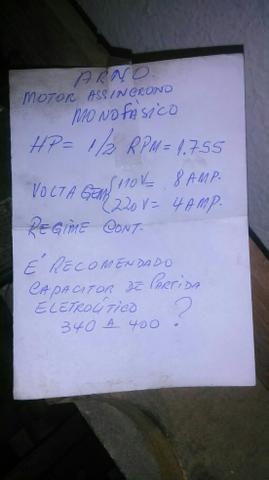 ARNO
MOTOR ASSINCRONO
MONOFÁSICO
HP = 1/2 RPM = 1.755
VOLTAGEM { 110V = 8 AMP.
220V = 4 AMP.
REGIME CONT.
E' RECOMENDADO
CAPACITOR DE PARTIDA
ELETROLÍTICO
340 A 400 ?